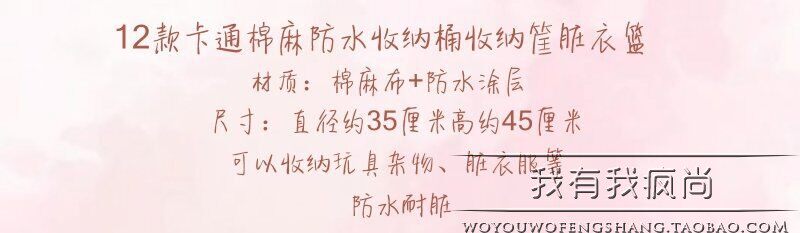 12款卡通棉麻防水收纳桶收纳筐脏衣篮
材质：棉麻布+防水涂层
尺寸：直径约35厘米高约45厘米
可以收纳玩具杂物、脏衣服等
我有我疯尚
防水耐脏
WOYOUWOFENGSHANG.TAOBAO.COM